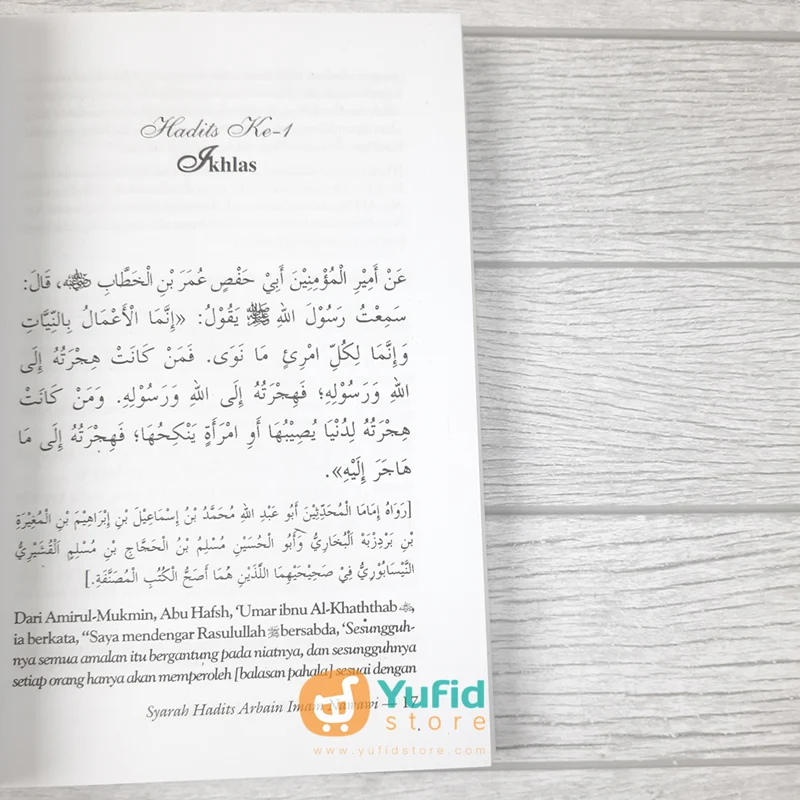 Hadits Ke-1
Ikhlas
عَنْ أَمِيْرِ الْمُؤْمِنِيْنَ أَبِيْ حَفْصٍ عُمَرَ بْنِ الْخَطَّابِ ﵁، قَالَ:
سَمِعْتُ رَسُوْلَ اللهِ ﷺ يَقُوْلُ: «إِنَّمَا الْأَعْمَالُ بِالنِّيَّاتِ
وَإِنَّمَا لِكُلِّ امْرِئٍ مَا نَوَى. فَمَنْ كَانَتْ هِجْرَتُهُ إِلَى
اللهِ وَرَسُوْلِهِ؛ فَهِجْرَتُهُ إِلَى اللهِ وَرَسُوْلِهِ. وَمَنْ كَانَتْ
هِجْرَتُهُ لِدُنْيَا يُصِيْبُهَا أَوِ امْرَأَةٍ يَنْكِحُهَا؛ فَهِجْرَتُهُ إِلَى مَا
هَاجَرَ إِلَيْهِ».
[رَوَاهُ إِمَامَا الْمُحَدِّثِيْنَ أَبُو عَبْدِ اللهِ مُحَمَّدُ بْنُ إِسْمَاعِيْلَ بْنِ إِبْرَاهِيْمَ بْنِ الْمُغِيْرَةِ
بْنِ بَرْدِزْبَهْ الْبُخَارِيُّ وَأَبُو الْحُسَيْنِ مُسْلِمُ بْنُ الْحَجَّاجِ بْنِ مُسْلِمٍ الْقُشَيْرِيُّ
النَّيْسَابُوْرِيُّ فِيْ صَحِيْحَيْهِمَا اللَّذَيْنِ هُمَا أَصَحُّ الْكُتُبِ الْمُصَنَّفَةِ.]
Dari Amirul-Mukmin, Abu Hafsh, 'Umar ibnu Al-Khaththab ﵁,
ia berkata, "Saya mendengar Rasulullah ﷺ bersabda, 'Sesungguh-
nya semua amalan itu bergantung pada niatnya, dan sesungguhnya
setiap orang hanya akan memperoleh [balasan pahala] sesuai dengan
Syarah Hadits Arbain Imam Nawawi — 17
Yufid
store
www.yufidstore.com